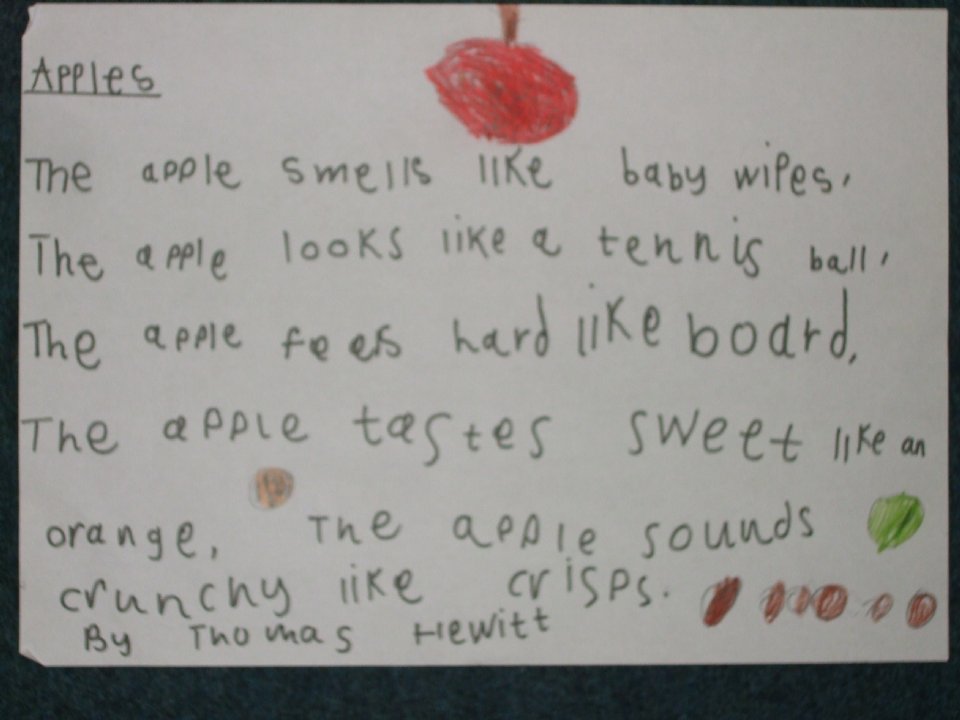 Apples
The apple smells like baby wipes.
The apple looks like a tennis ball.
The apple feels hard like board.
The apple tastes sweet like an
orange, The apple sounds
crunchy like crisps.
By Thomas Hewitt